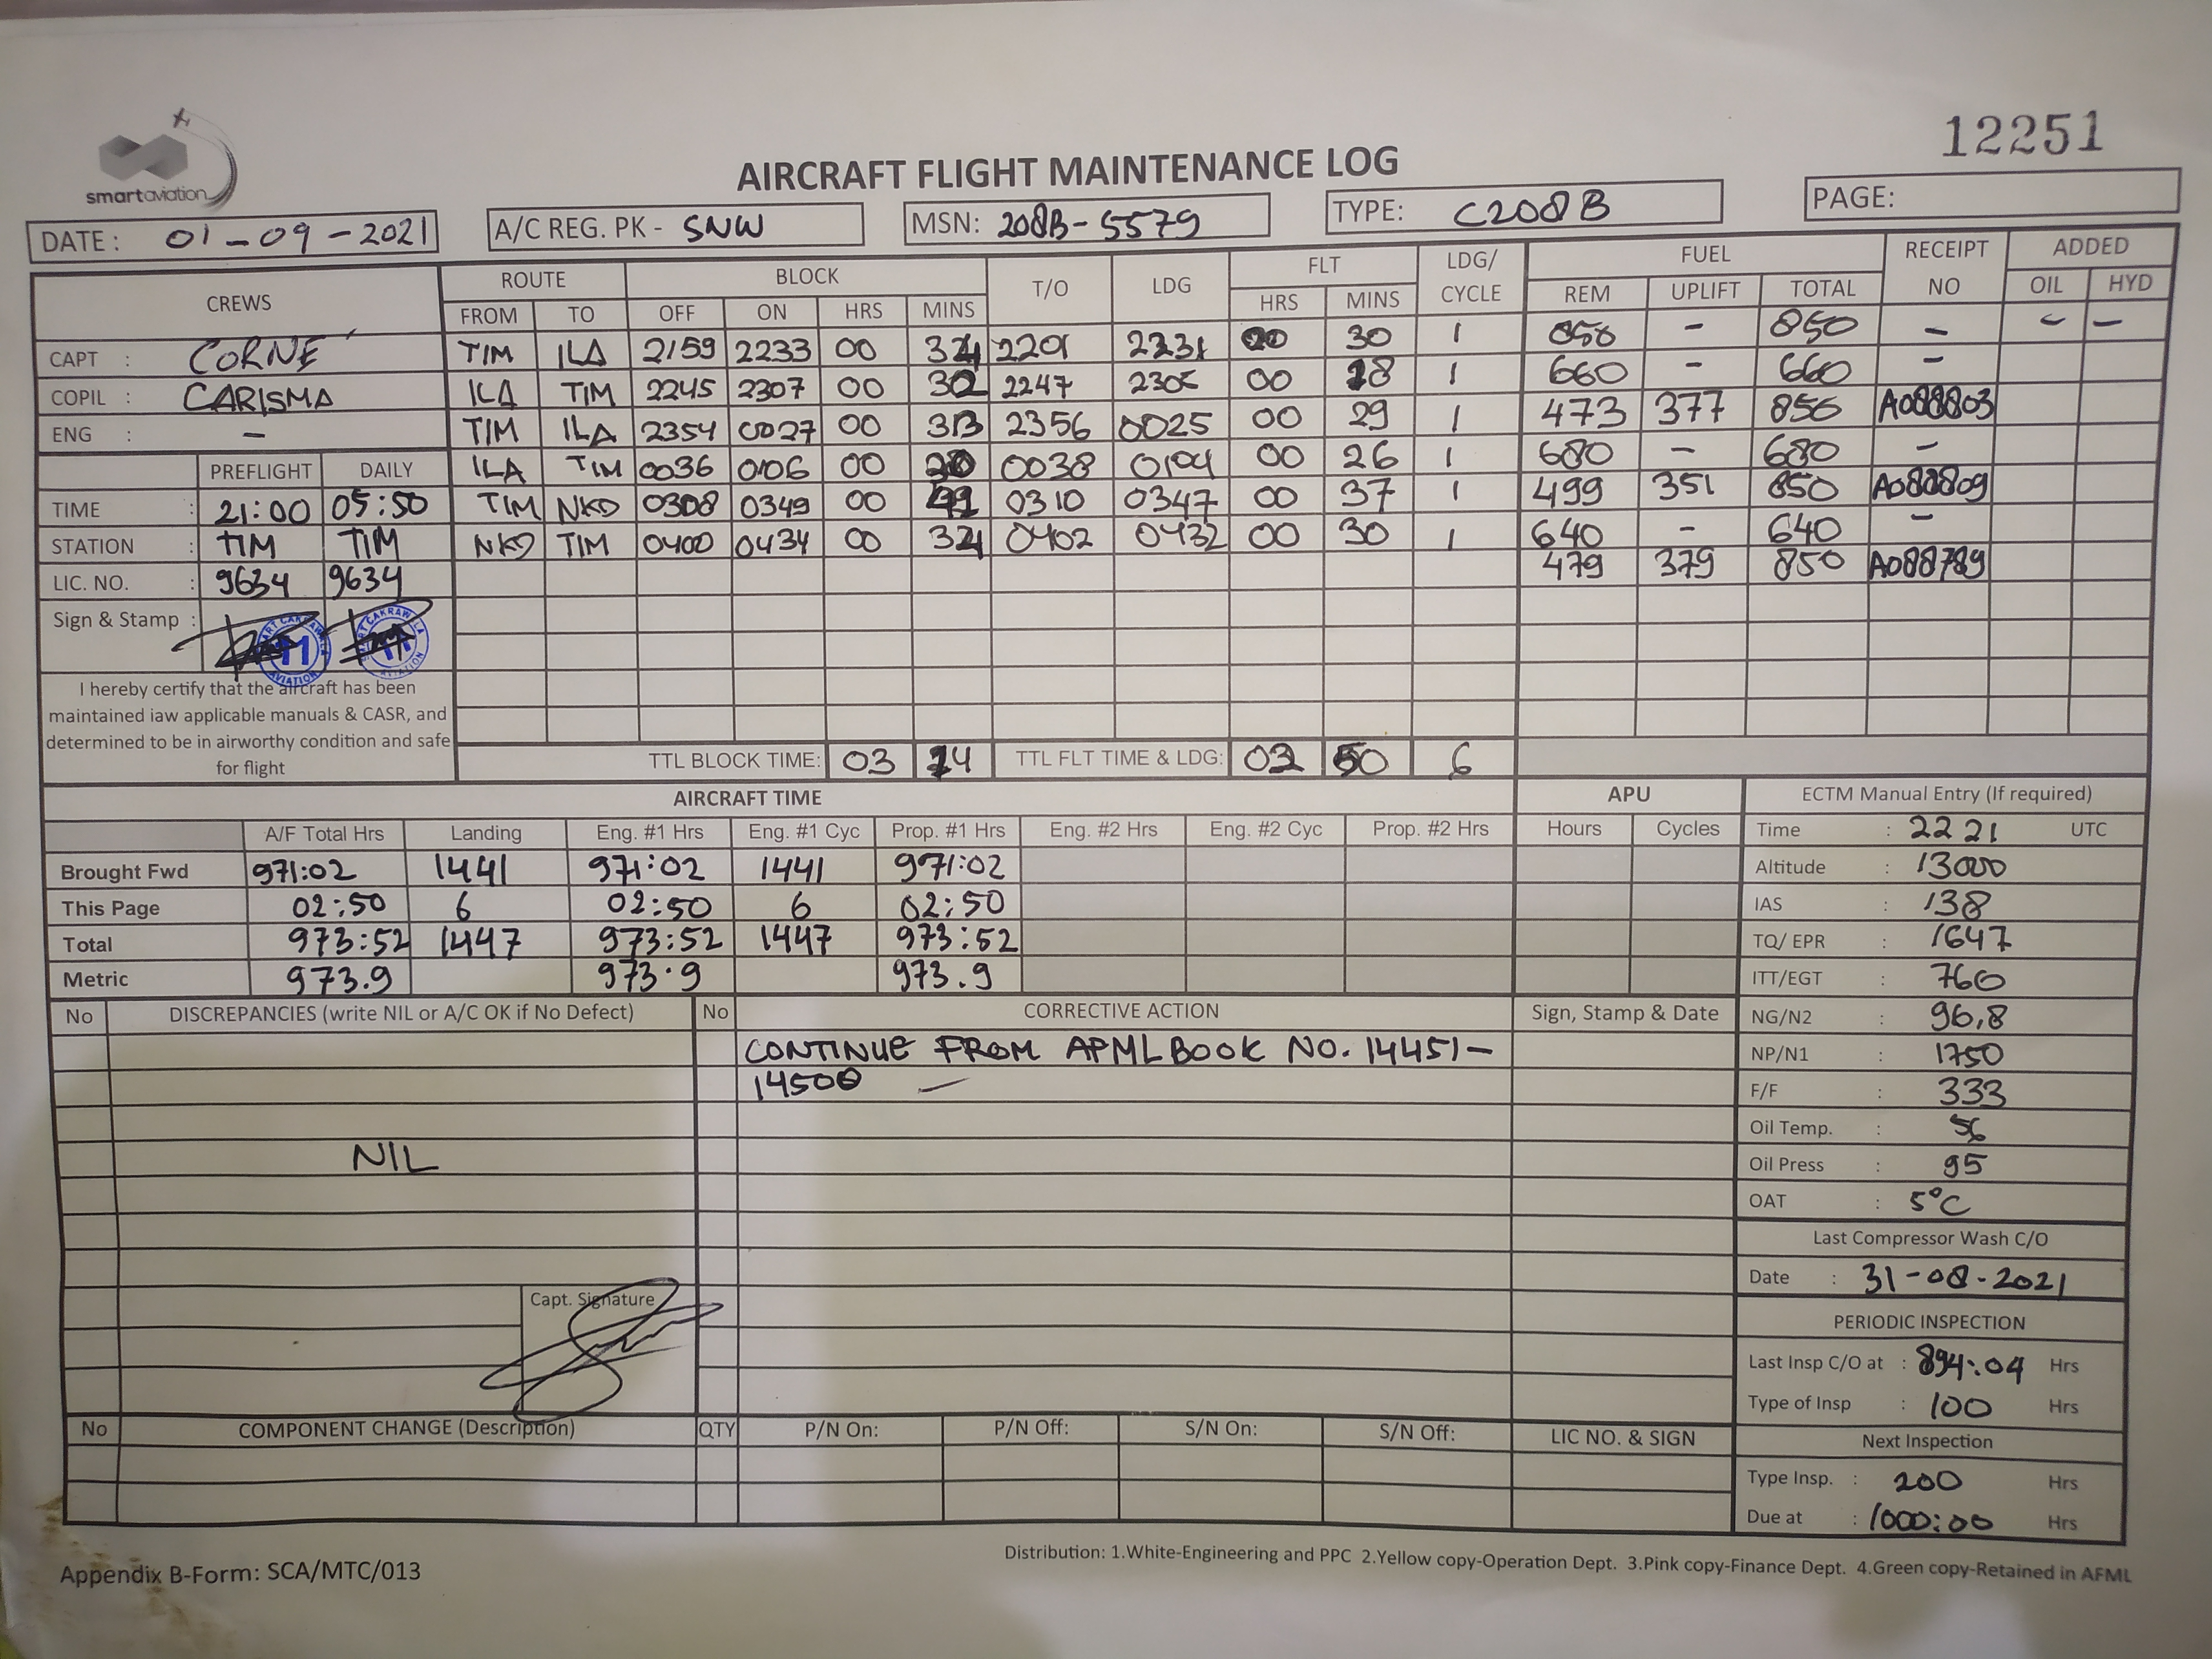 12251
smartaviation
AIRCRAFT FLIGHT MAINTENANCE LOG
DATE : 01-09-2021 A/C REG. PK - SNW MSN: 208B-5579 TYPE: C208B PAGE:
CREWS ROUTE BLOCK T/O LDG FLT LDG/ CYCLE FUEL RECEIPT NO ADDED
FROM TO OFF ON HRS MINS HRS MINS REM UPLIFT TOTAL OIL HYD
CAPT : CORNE TIM ILA 2159 2233 00 34 2201 2231 00 30 1 850 - 850 - - -
COPIL : CARISMA ILA TIM 2245 2307 00 2247 00 18 1 660 - 660 -
ENG : - TIM ILA 2354 0027 00 33 2356 0025 00 29 1 473 377 850 A088803
PREFLIGHT DAILY ILA TIM 0036 0106 00 0038 0104 00 26 1 680 - 680 -
TIME : 21:00 05:50 TIM NKD 0308 0349 00 0310 0347 00 37 1 499 351 850 A088809
STATION : TIM TIM NKD TIM 0400 0434 00 34 0402 0432 00 30 1 640 - 640 -
LIC. NO. : 9634 9634 479 379 850 A088789
Sign & Stamp :
I hereby certify that the aircraft has been
maintained iaw applicable manuals & CASR, and
determined to be in airworthy condition and safe
for flight
TTL BLOCK TIME: 03 14 TTL FLT TIME & LDG: 02 50 6
AIRCRAFT TIME APU ECTM Manual Entry (If required)
A/F Total Hrs Landing Eng. #1 Hrs Eng. #1 Cyc Prop. #1 Hrs Eng. #2 Hrs Eng. #2 Cyc Prop. #2 Hrs Hours Cycles Time : 2221 UTC
Brought Fwd 971:02 1441 971:02 1441 971:02 Altitude : 13000
This Page 02:50 6 02:50 6 02:50 IAS : 138
Total 973:52 1447 973:52 1447 973:52 TQ/ EPR : 1647
Metric 973.9 973.9 973.9 ITT/EGT : 760
No DISCREPANCIES (write NIL or A/C OK if No Defect) No CORRECTIVE ACTION Sign, Stamp & Date NG/N2 : 96.8
CONTINUE FROM APML BOOK NO. 14451- NP/N1 : 1750
14500 - F/F : 333
Oil Temp. : 56
NIL Oil Press : 95
OAT : 5°C
Last Compressor Wash C/O
Date : 31-08-2021
Capt. Signature
PERIODIC INSPECTION
Last Insp C/O at : 894:04 Hrs
Type of Insp : 100 Hrs
No COMPONENT CHANGE (Description) QTY P/N On: P/N Off: S/N On: S/N Off: LIC NO. & SIGN Next Inspection
Type Insp. : 200 Hrs
Due at : 1000:00 Hrs
Appendix B-Form: SCA/MTC/013
Distribution: 1.White-Engineering and PPC 2.Yellow copy-Operation Dept. 3.Pink copy-Finance Dept. 4.Green copy-Retained in AFML